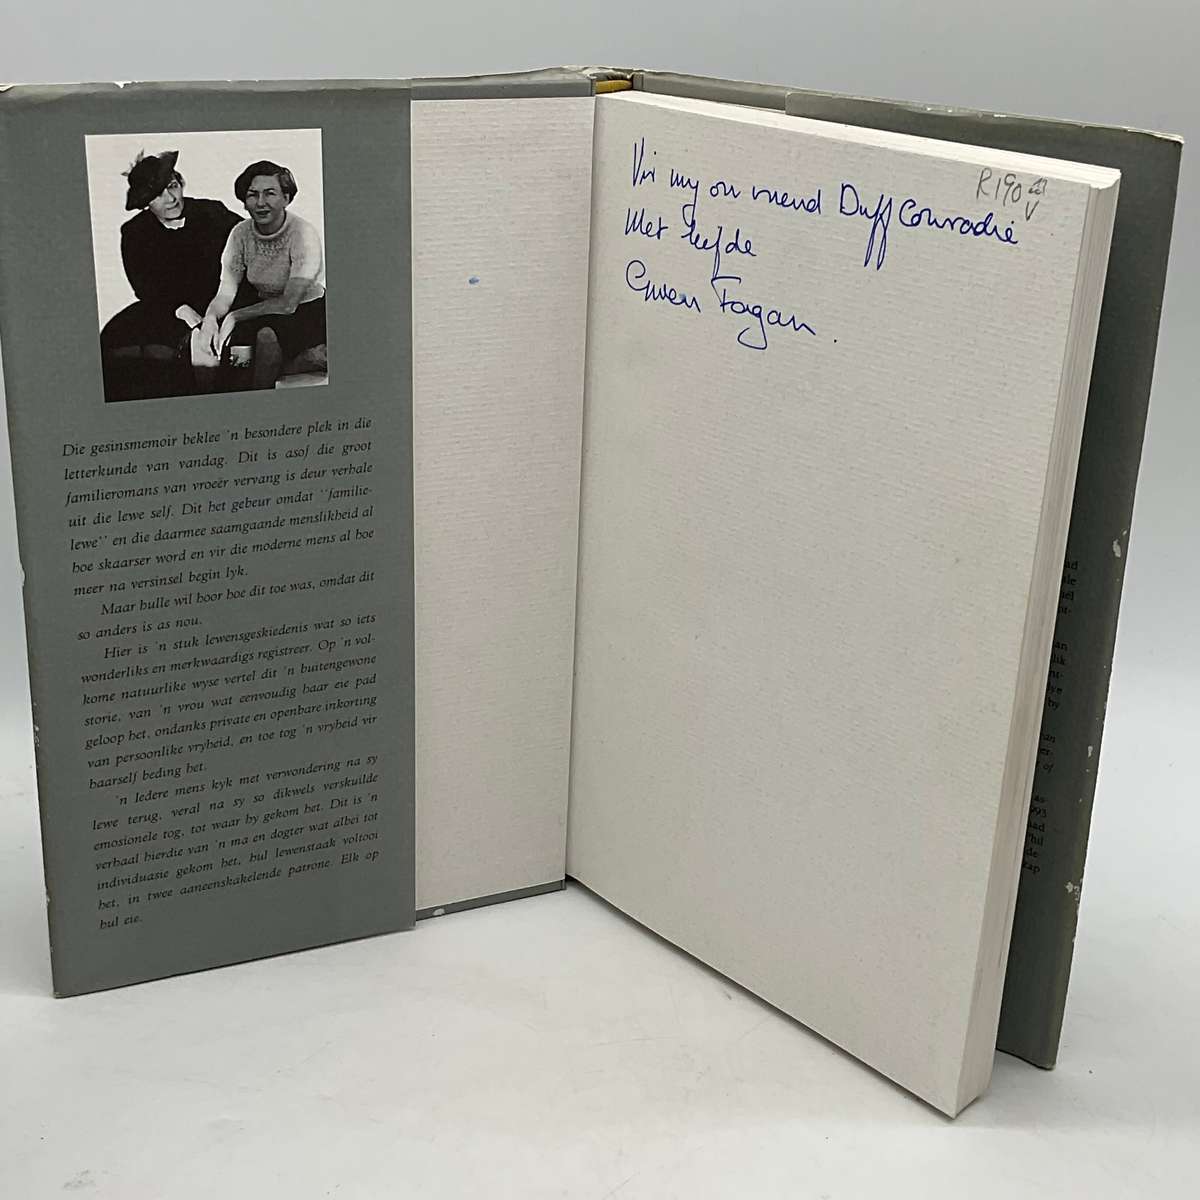 Die gesinsmemoir beklee 'n besondere plek in die
letterkunde van vandag. Dit is asof die groot
familieromans van vroeër vervang is deur verhale
uit die lewe self. Dit het gebeur omdat "familie-
lewe" en die daarmee saamgaande menslikheid al
hoe skaarser word en vir die moderne mens al hoe
meer na versinsel begin lyk.
Maar hulle wil hoor hoe dit toe was, omdat dit
so anders is as nou.
Hier is 'n stuk lewensgeskiedenis wat so iets
wonderliks en merkwaardigs registreer. Op 'n vol-
kome natuurlike wyse vertel dit 'n buitengewone
storie, van 'n vrou wat eenvoudig haar eie pad
geloop het, ondanks private en openbare inkorting
van persoonlike vryheid, en toe tog 'n vryheid vir
haarself beding het.
'n Iedere mens kyk met verwondering na sy
lewe terug, veral na sy so dikwels verskuilde
emosionele tog, tot waar hy gekom het. Dit is 'n
verhaal hierdie van 'n ma en dogter wat albei tot
individuasie gekom het, hul lewenstaak voltooi
het, in twee aaneenskakelende patrone. Elk op
hul eie.
Vir my ou vriend Duff Conradie
Met liefde
Gwen Fagan.
R190
V